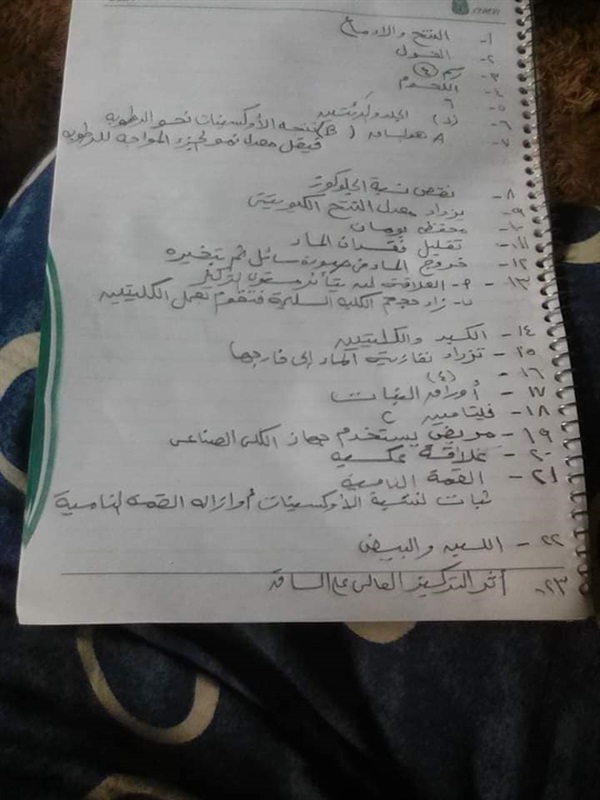 ١- النتح والادماع
٢- البول
٣- رقم (٤)
٤- اللحوم
٥- ٦
٦- (د) الجلد والرئتين
٧- A هو الساق (B) تتجه الأوكسينات نحو الرطوبة
فيقل معدل نمو الجزء المواجه للرطوبة
٨- نقص نسبة الجلوكوز
٩- يزداد معدل النتح الكيوتيني
١٠- محفظة بومان
١١- تقليل فقدان الماء
١٢- خروج الماء في صورة سائل ثم تبخيره
١٣- P- العلاقة
ب- زاد حجم الكلية السليمة فتقوم بعمل الكليتين
١٤- الكبد والكليتين
١٥- تزداد نفاذية الماء إلى خارجها
١٦- (٤)
١٧- أوراق النبات
١٨- فيتامين C
١٩- مريض يستخدم جهاز الكلى الصناعى
٢٠- علاقة عكسية
٢١- القمة النامية
ثبات لنسبة الأوكسينات أو إزالة القمة النامية
٢٢- اللبن والبيض
٢٣- أثر التركيز العالى على الساق